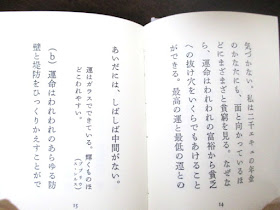 気づかない。私は二千エキュの年金
のかなたにも、面と向かっているほ
どにまざまざと貧窮を見る。なぜな
ら、運命はわれわれの富裕から貧乏
への抜け穴をいくらでもあけること
ができる。最高の運と最低の運との
14
あいだには、しばしば中間がない。
運はガラスでできている。輝くものほ
どこわれやすい。
(b) 運命はわれわれのあらゆる防
壁と堤防をひっくりかえすことがで
15